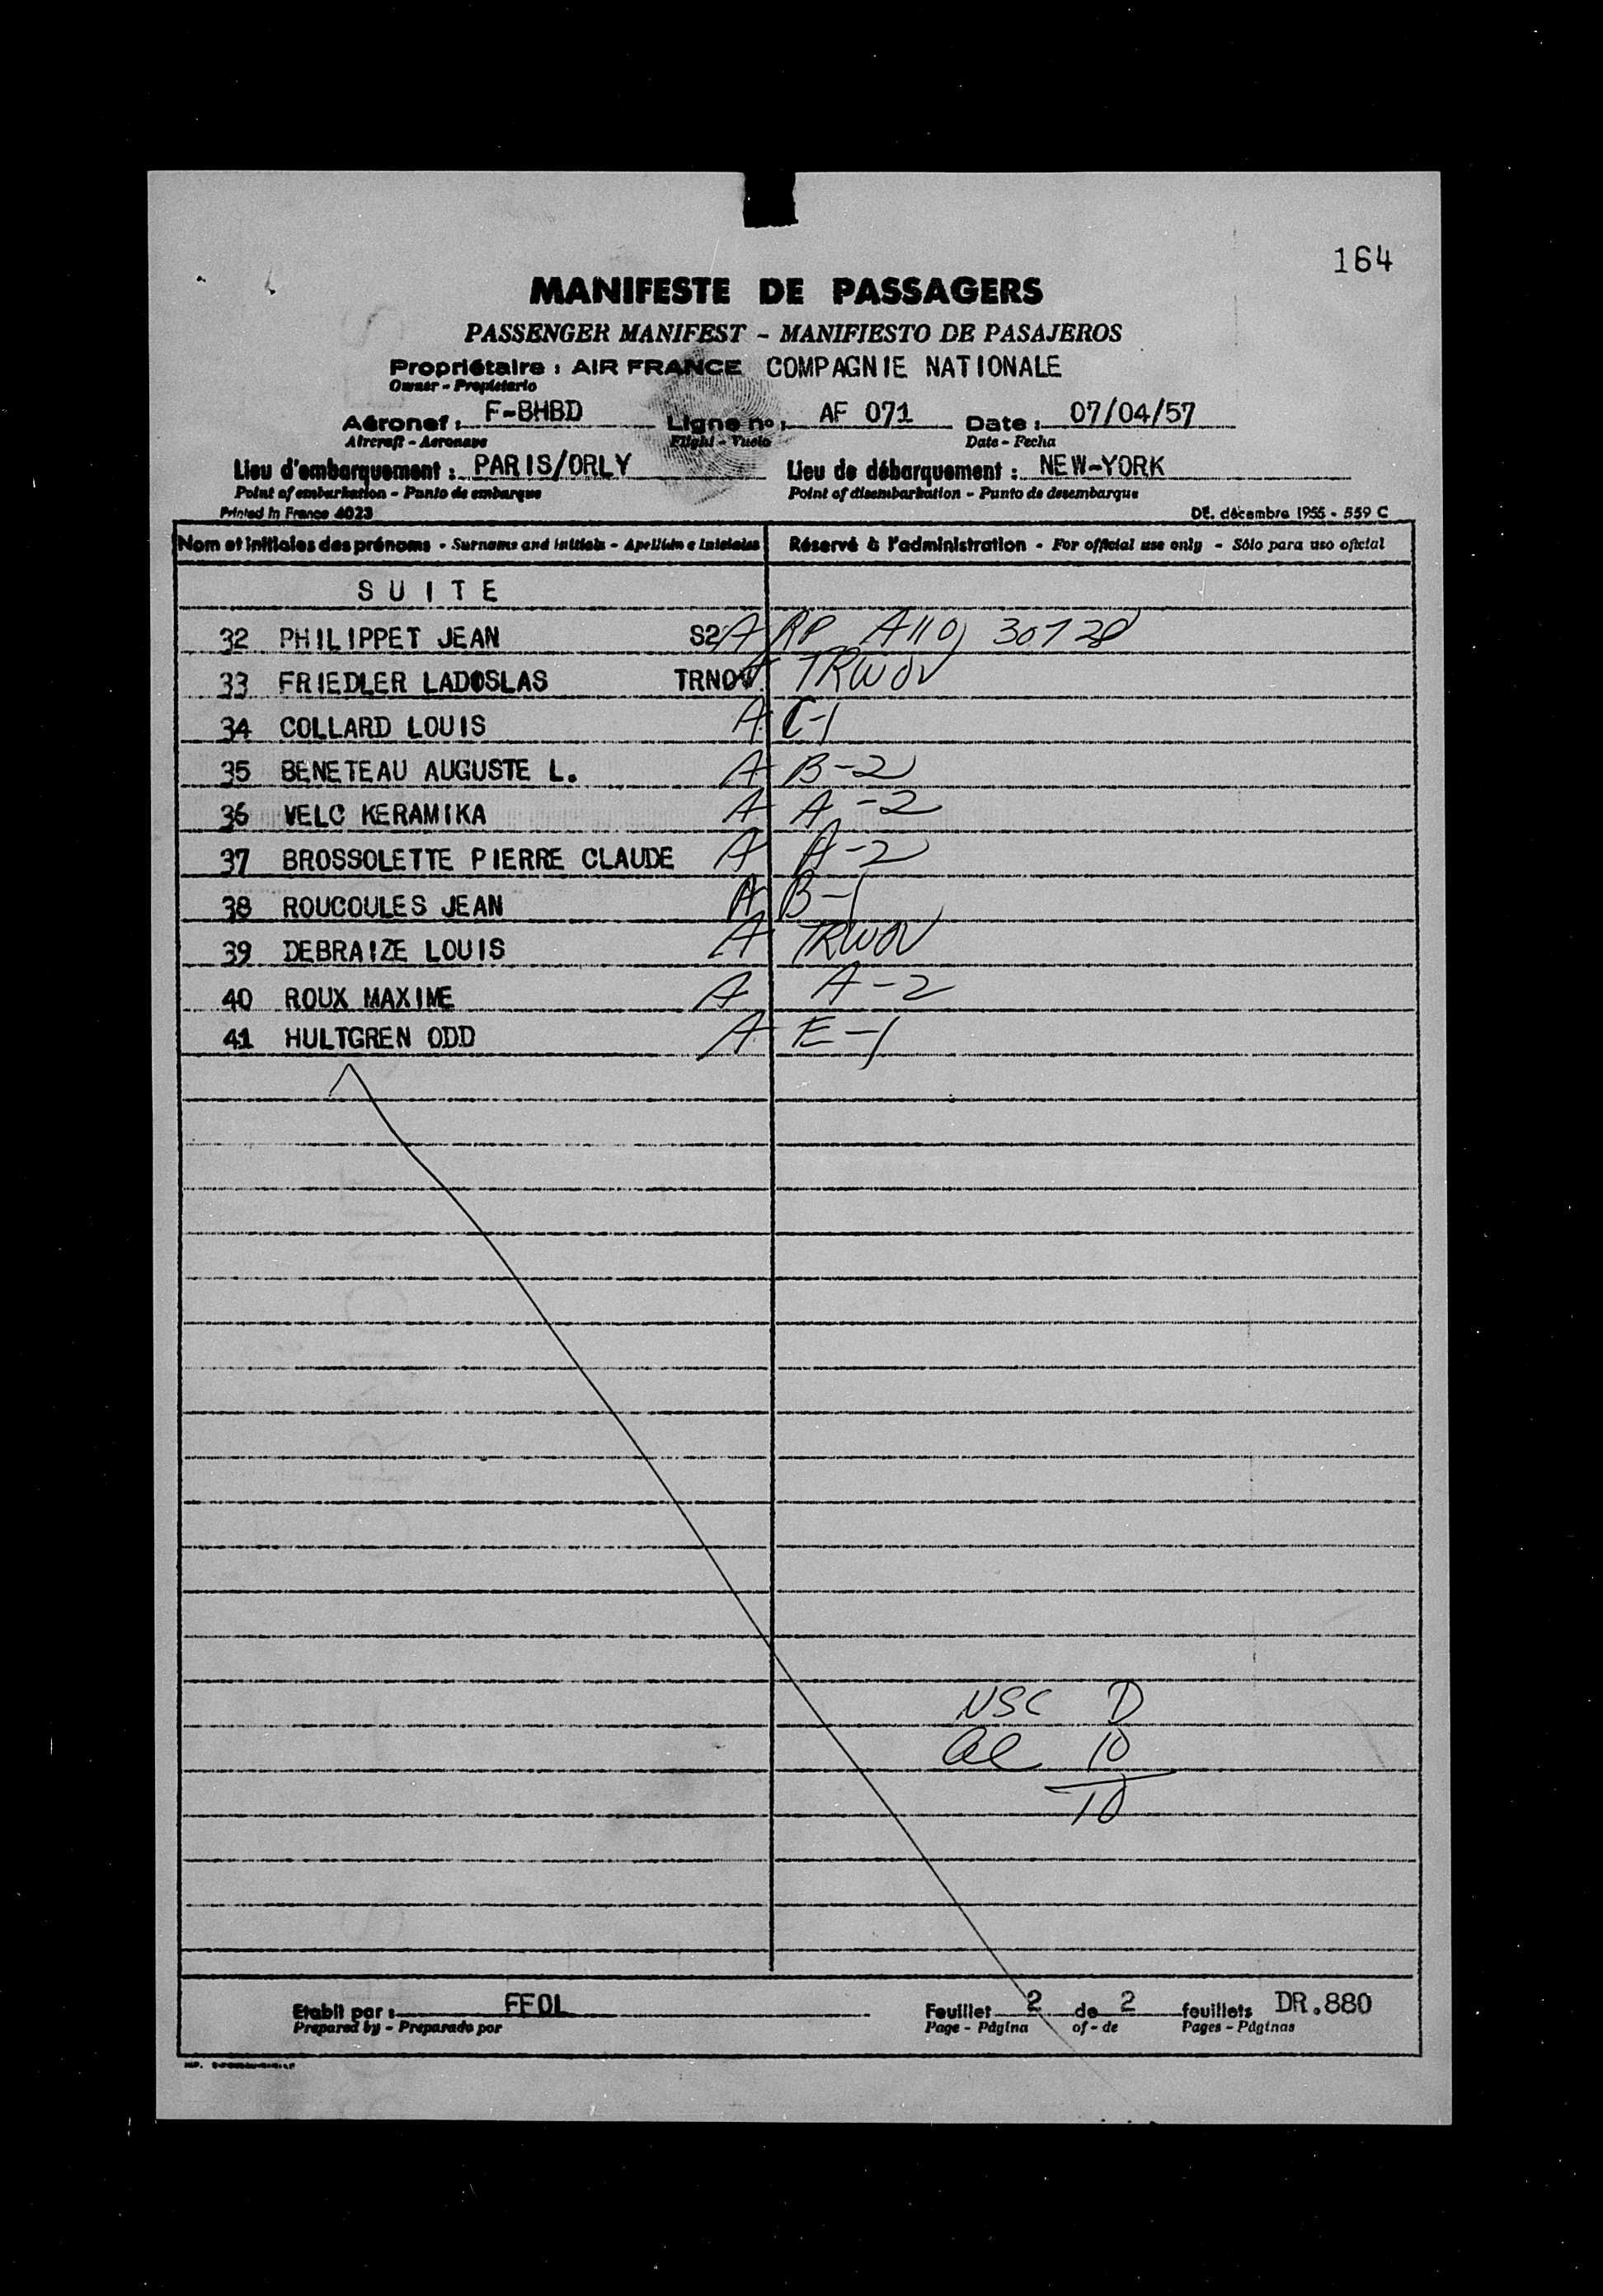 164
MANIFESTE DE PASSAGERS
PASSENGER MANIFEST - MANIFIESTO DE PASAJEROS
Propriétaire : AIR FRANCE COMPAGNIE NATIONALE
Owner - Propietario
Aéronef : F-BHBD Ligne no : AF 071 Date : 07/04/57
Aircraft - Aeronave Flight - Vuelo Date - Fecha
Lieu d'embarquement : PARIS/ORLY Lieu de débarquement : NEW-YORK
Point of embarkation - Punto de embarque Point of disembarkation - Punto de desembarque
Printed in France 4023 DE. décembre 1955 - 559 C
Nom et initiales des prénoms - Surname and initials - Apellido e iniciales Réservé à l'administration - For official use only - Sólo para uso oficial
SUITE
32 PHILIPPET JEAN S2 A RP A110) 30728
33 FRIEDLER LADOSLAS TRNOV TRWOV
34 COLLARD LOUIS A C-1
35 BENETEAU AUGUSTE L. A B-2
36 VELC KERAMIKA A A-2
37 BROSSOLETTE PIERRE CLAUDE A A-2
38 ROUCOULES JEAN A B-1
39 DEBRAIZE LOUIS A TRWOV
40 ROUX MAXIME A A-2
41 HULTGREN ODD A E-1
USC D
al 10
10
Etabli par : FFOL Feuillet 2 de 2 feuillets DR.880
Prepared by - Preparado por Page - Página of - de Pages - Páginas